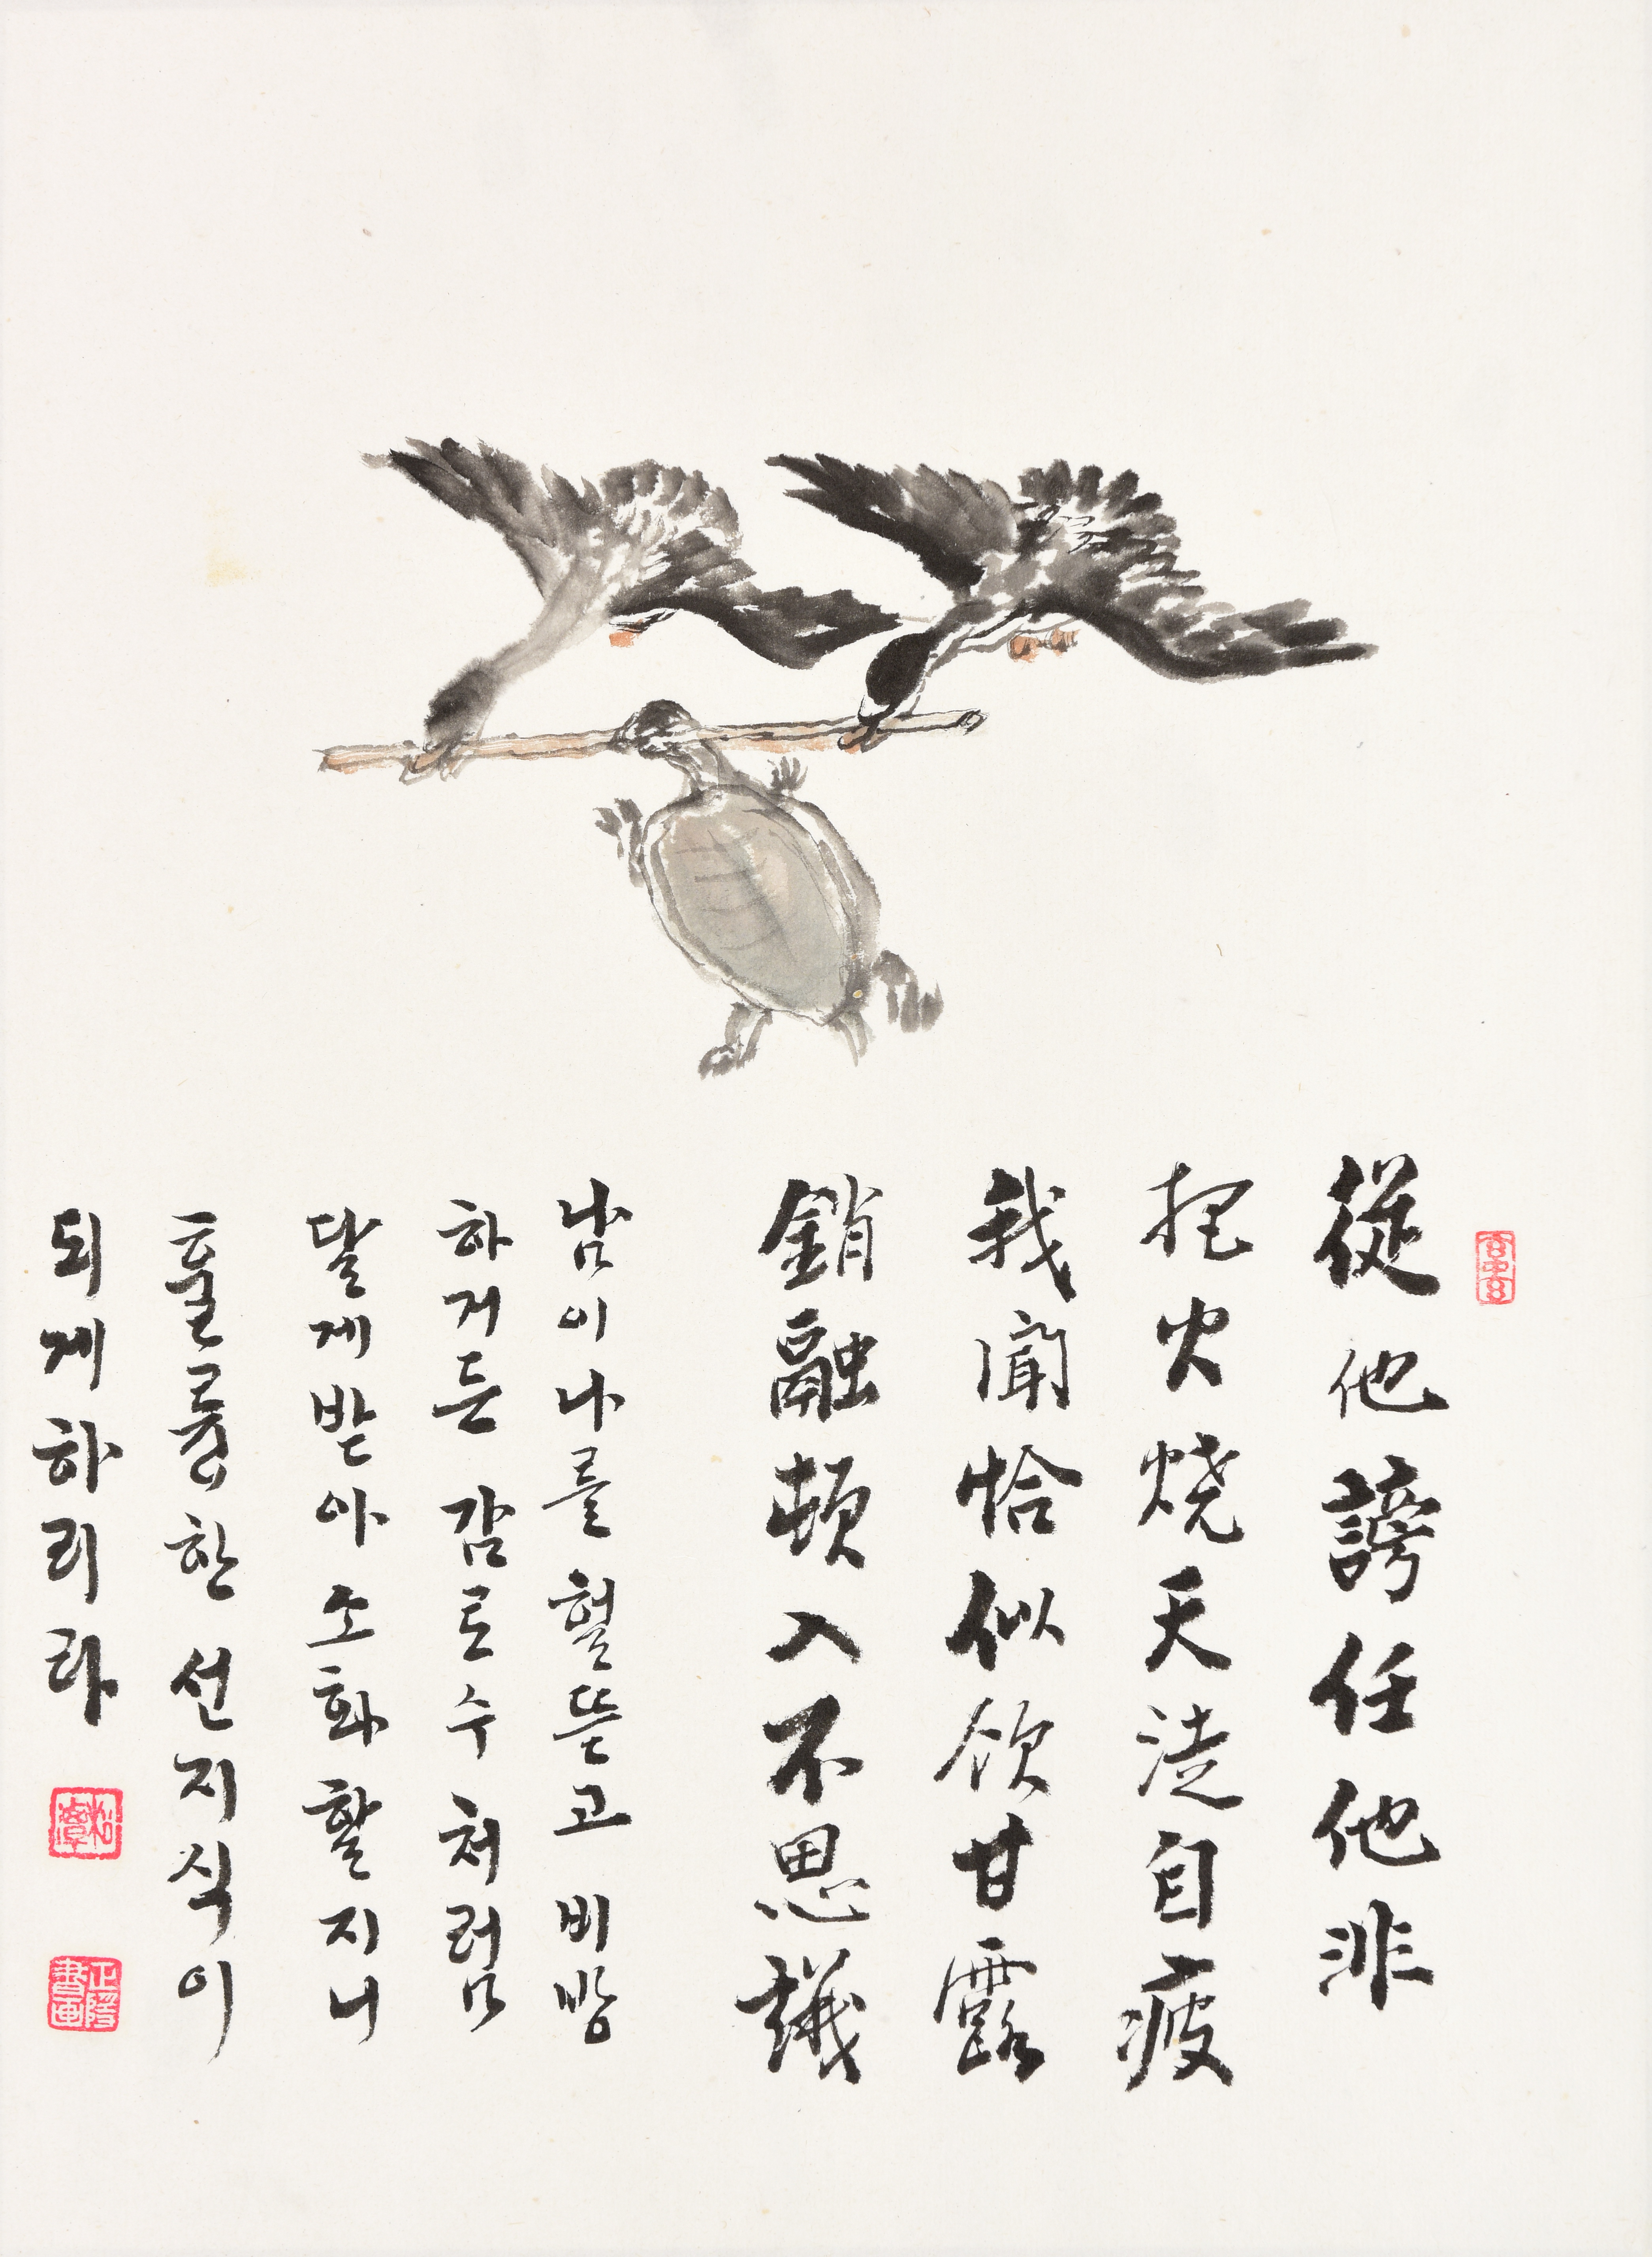 從他謗任他非
把火燒天徒自疲
我聞恰似飲甘露
銷融頓入不思議
남이 나를 헐뜯고 비방
하거든 감로수처럼
달게 받아 소화할지니
훌륭한 선지식이
되게 하리라